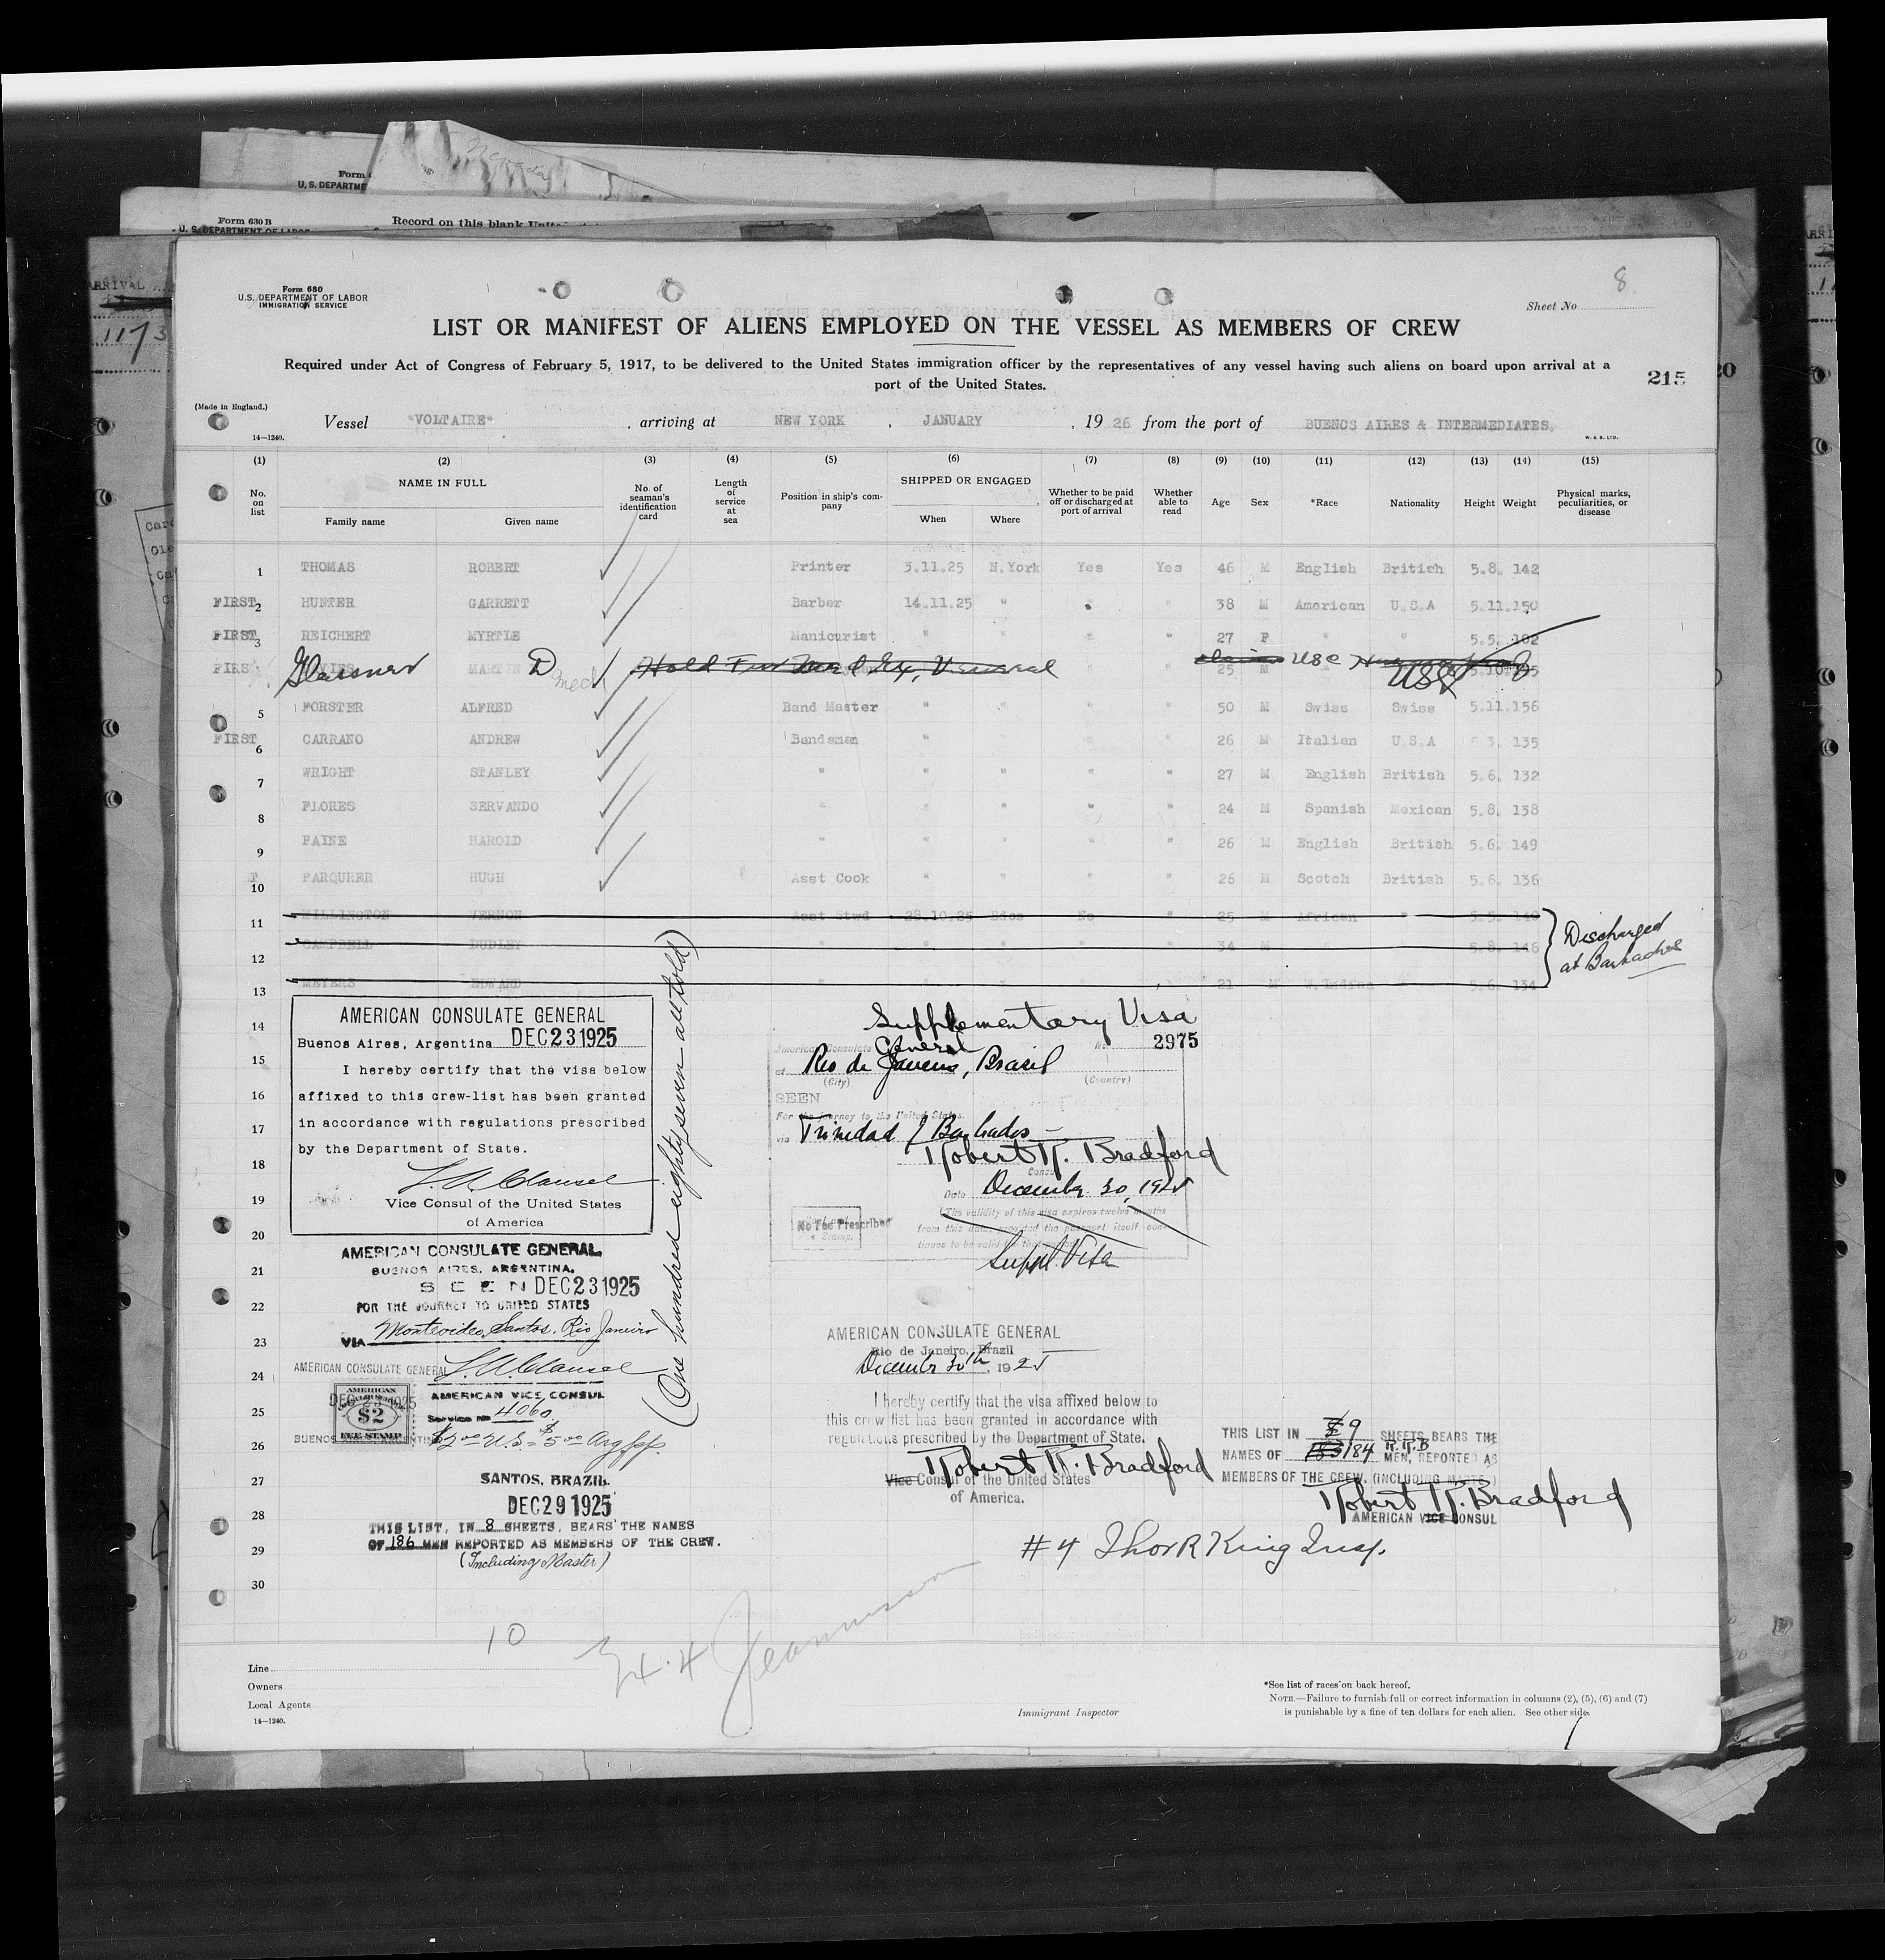 Nevada
Form
U. S. DEPARTME
Form 630 B
U. S. DEPARTMENT OF LABOR
Record on this blank Unite
ARRIVAL
1173
8
Form 680
U.S. DEPARTMENT OF LABOR
IMMIGRATION SERVICE
Sheet No
LIST OR MANIFEST OF ALIENS EMPLOYED ON THE VESSEL AS MEMBERS OF CREW
Required under Act of Congress of February 5, 1917, to be delivered to the United States immigration officer by the representatives of any vessel having such aliens on board upon arrival at a
port of the United States.
215
(Made in England.)
14—1240.
Vessel "VOLTAIRE" , arriving at NEW YORK , JANUARY , 19 26 from the port of BUENOS AIRES & INTERMEDIATES.
W. & S. LTD.
(1) (2) (3) (4) (5) (6) (7) (8) (9) (10) (11) (12) (13) (14) (15)
No. on list NAME IN FULL Family name Given name No. of seaman's identification card Length of service at sea Position in ship's company SHIPPED OR ENGAGED When Where Whether to be paid off or discharged at port of arrival Whether able to read Age Sex *Race Nationality Height Weight Physical marks, peculiarities, or disease
1 THOMAS ROBERT Printer 3.11.25 N.York Yes Yes 46 M English British 5.8. 142
FIRST 2 HUNTER GARRETT Barber 14.11.25 " " " 38 M American U.S.A 5.11.150
FIRST 3 REICHERT MYRTLE Manicurist " " " " 27 F " " 5.5. 102
FIRS Glaisner MARTIN D Hold For 25 M claims USC USC
5 FORSTER ALFRED Band Master " " " " 50 M Swiss Swiss 5.11.156
FIRST 6 CARRANO ANDREW Bandsman " " " " 26 M Italian U.S.A 5 3. 135
7 WRIGHT STANLEY " " " " " 27 M English British 5.6. 132
8 FLORES SERVANDO " " " " " 24 M Spanish Mexican 5.8. 138
9 PAINE HAROLD " " " " " 26 M English British 5.6. 149
T 10 FARQUHER HUGH Asst Cook " " " " 26 M Scotch British 5.6. 136
11 WILLINGTON VERNON Asst Stwd 28.10.25 Bdos No " 25 M African " 5.5. 140
12 CAMPBELL DUDLEY " " " " " 34 M 5.8. 146
13 MEYERS EDWARD " 21 M W.Indian 5.6. 134
Discharged
at Barbados
14
15
16
17
18
19
20
21
22
23
24
25
26
27
28
29
30
AMERICAN CONSULATE GENERAL
Buenos Aires, Argentina DEC 23 1925
I hereby certify that the visa below
affixed to this crew-list has been granted
in accordance with regulations prescribed
by the Department of State.
Vice Consul of the United States
of America
AMERICAN CONSULATE GENERAL.
BUENOS AIRES, ARGENTINA.
SEEN DEC 23 1925
FOR THE JOURNEY TO UNITED STATES
VIA Montevideo, Santos, Rio Janeiro
AMERICAN CONSULATE GENERAL
AMERICAN VICE CONSUL
Service No 4060
AMERICAN
$2
FEE STAMP
SANTOS, BRAZIL
DEC 29 1925
THIS LIST, IN 8 SHEETS, BEARS THE NAMES
OF 186 MEN REPORTED AS MEMBERS OF THE CREW.
(Including Master)
(One hundred eighty seven all told)
Supplementary Visa
American Consulate General No. 2975
at Rio de Janeiro, Brasil
(City) (Country)
SEEN
For the journey to the United States.
via Trinidad & Barbados —
Robert R. Bradford
Consul
Date December 30, 1925
(The validity of this visa expires twelve months
from this date provided the passport itself con-
tinues to be valid for that period
No Fee Prescribed
Stamp.
Suppl. Visa
AMERICAN CONSULATE GENERAL
Rio de Janeiro, Brazil
December 30th 1925
I hereby certify that the visa affixed below to
this crew list has been granted in accordance with
regulations prescribed by the Department of State.
Robert R. Bradford
Vice Consul of the United States
of America.
THIS LIST IN 9 SHEETS BEARS THE
NAMES OF 184 R.R.B MEN, REPORTED AS
MEMBERS OF THE CREW. (INCLUDING MASTER)
Robert R. Bradford
AMERICAN VICE CONSUL
#4 Thor R King Insp.
10
Line
Owners
Local Agents
14—1240.
Immigrant Inspector
*See list of races on back hereof.
NOTE.—Failure to furnish full or correct information in columns (2), (5), (6) and (7)
is punishable by a fine of ten dollars for each alien. See other side.